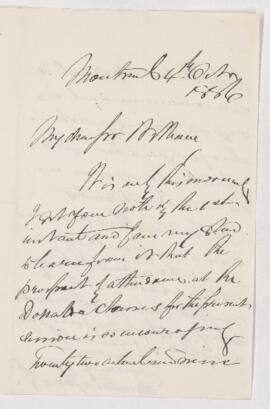 Montreal 4th Octr
1886
My dear Sir William
It is only this morning
I got your note of the 1st
instant and I am very glad
to learn from it that the
prospect of attendance at the
Donalda Classes for the present
session is so encouraging
Twenty two